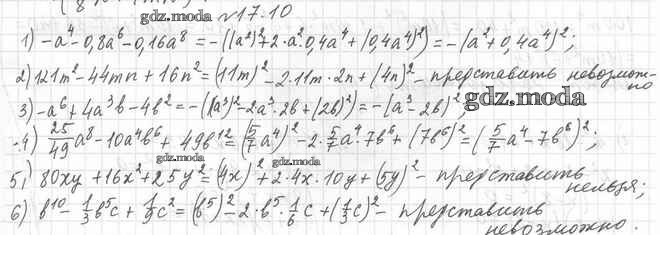 №17.10
gdz.moda
1) -a⁴ - 0,8a⁶ - 0,16a⁸ = -((a²)² + 2·a²·0,4a⁴ + (0,4a⁴)²) = -(a² + 0,4a⁴)²;
2) 121m² - 44mn + 16n² = (11m)² - 2·11m·2n + (4n)² - представить невозмож-
но
3) -a⁶ + 4a³b - 4b² = -((a³)² - 2a³·2b + (2b)²) = -(a³ - 2b)²;
gdz.moda
4) 25/49 a⁸ - 10a⁴b⁶ + 49b¹² = (5/7 a⁴)² - 2·5/7 a⁴·7b⁶ + (7b⁶)² = (5/7 a⁴ - 7b⁶)²;
gdz.moda
5) 80xy + 16x² + 25y² = (4x)² + 2·4x·10y + (5y)² - представить
нельзя;
gdz.moda
6) b¹⁰ - 1/3 b⁵c + 1/9 c² = (b⁵)² - 2·b⁵·1/6 c + (1/3 c)² - представить
невозможно.